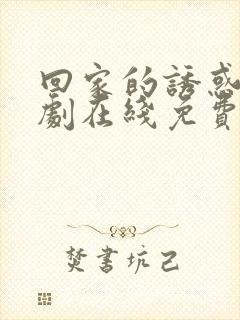 回家的誘惑
劇在綫免費
焚書坑己